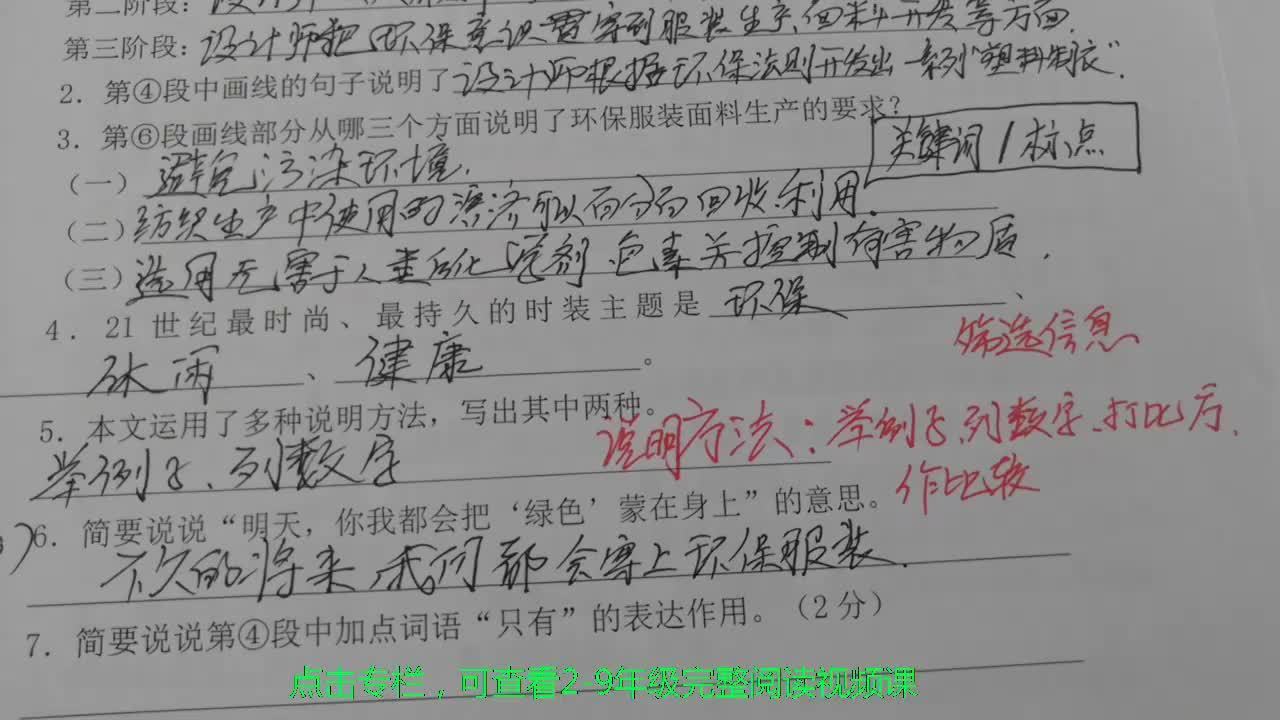 第二阶段：
第三阶段：设计师把环保意识贯穿到服装生产、面料开发等方面.
2．第④段中画线的句子说明了设计师根据环保法则开发出一系列"塑料制衣".
3．第⑥段画线部分从哪三个方面说明了环保服装面料生产的要求？
关键词/标点
（一）避免污染环境.
（二）纺织生产中使用的溶济可以百分百回收利用.
（三）选用无害于人类的化学剂、色素并控制有害物质.
4．21世纪最时尚、最持久的时装主题是 环保 、
休闲 、 健康 。
筛选信息
5．本文运用了多种说明方法，写出其中两种。
举例子、列数字
说明方法：举例子、列数字、打比方、
作比较
6．简要说说“明天，你我都会把‘绿色’蒙在身上”的意思。
不久的将来,我们都会穿上环保服装.
7．简要说说第④段中加点词语“只有”的表达作用。（2分）
点击专栏，可查看2-9年级完整阅读视频课